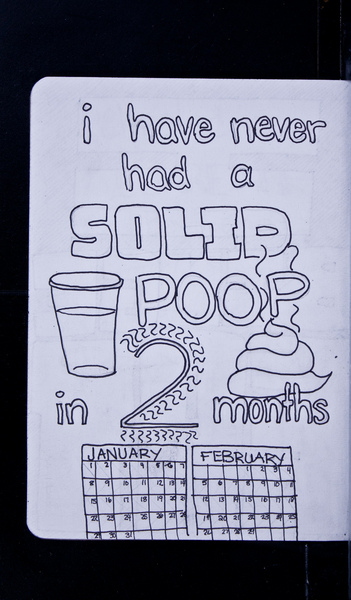 i have never
had a
SOLID
POOP
in 2 months
JANUARY FEBRUARY
1 2 3 4 5 6 7 1 2 3 4
8 9 10 11 12 13 14 5 6 7 8 9 10 11
15 16 17 18 19 20 21 12 13 14 15 16 17 18
22 23 24 25 26 27 28 19 20 21 22 23 24 25
29 30 31 26 27 28